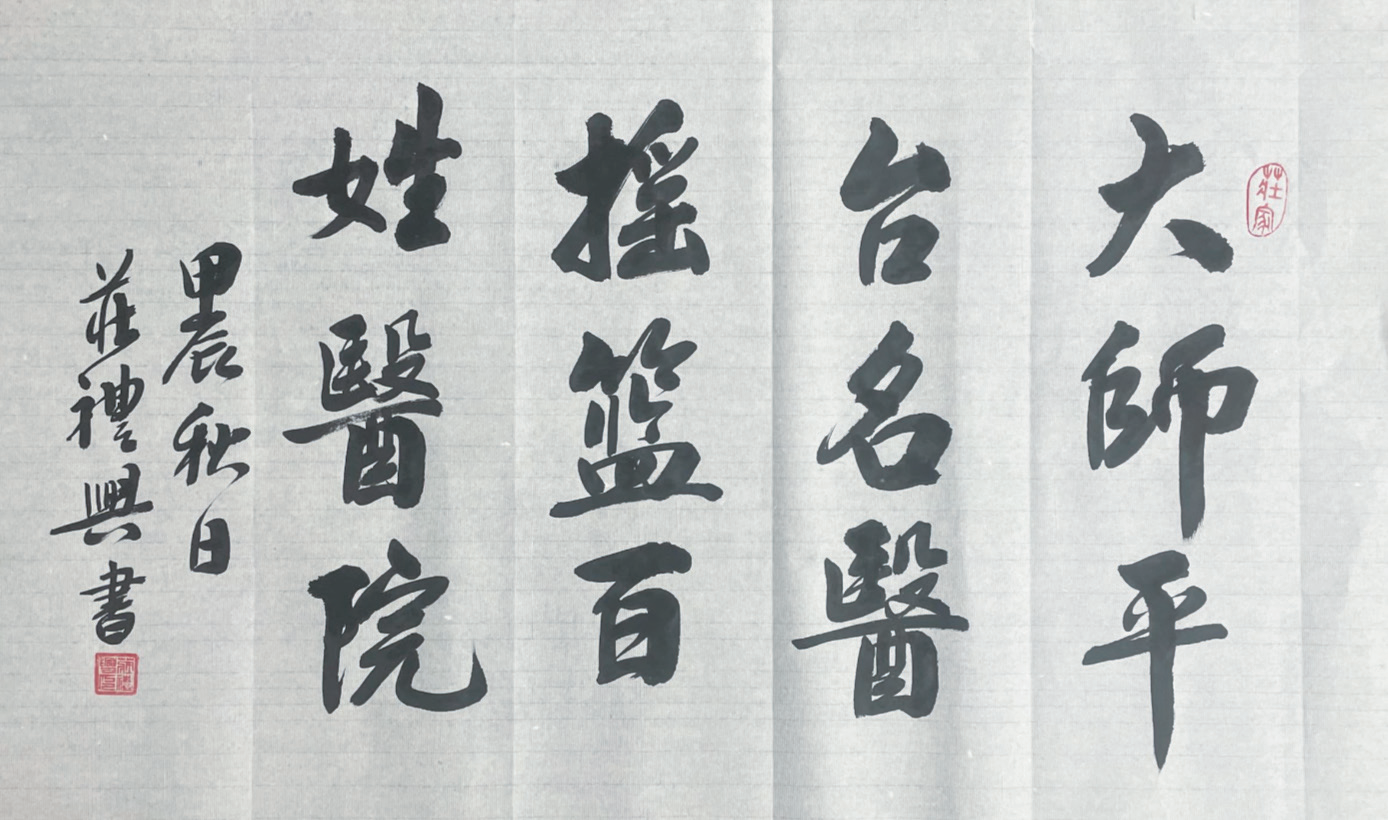 莊家
大師平
台名醫
摇篮百
姓醫院
甲辰秋日
莊禮興書